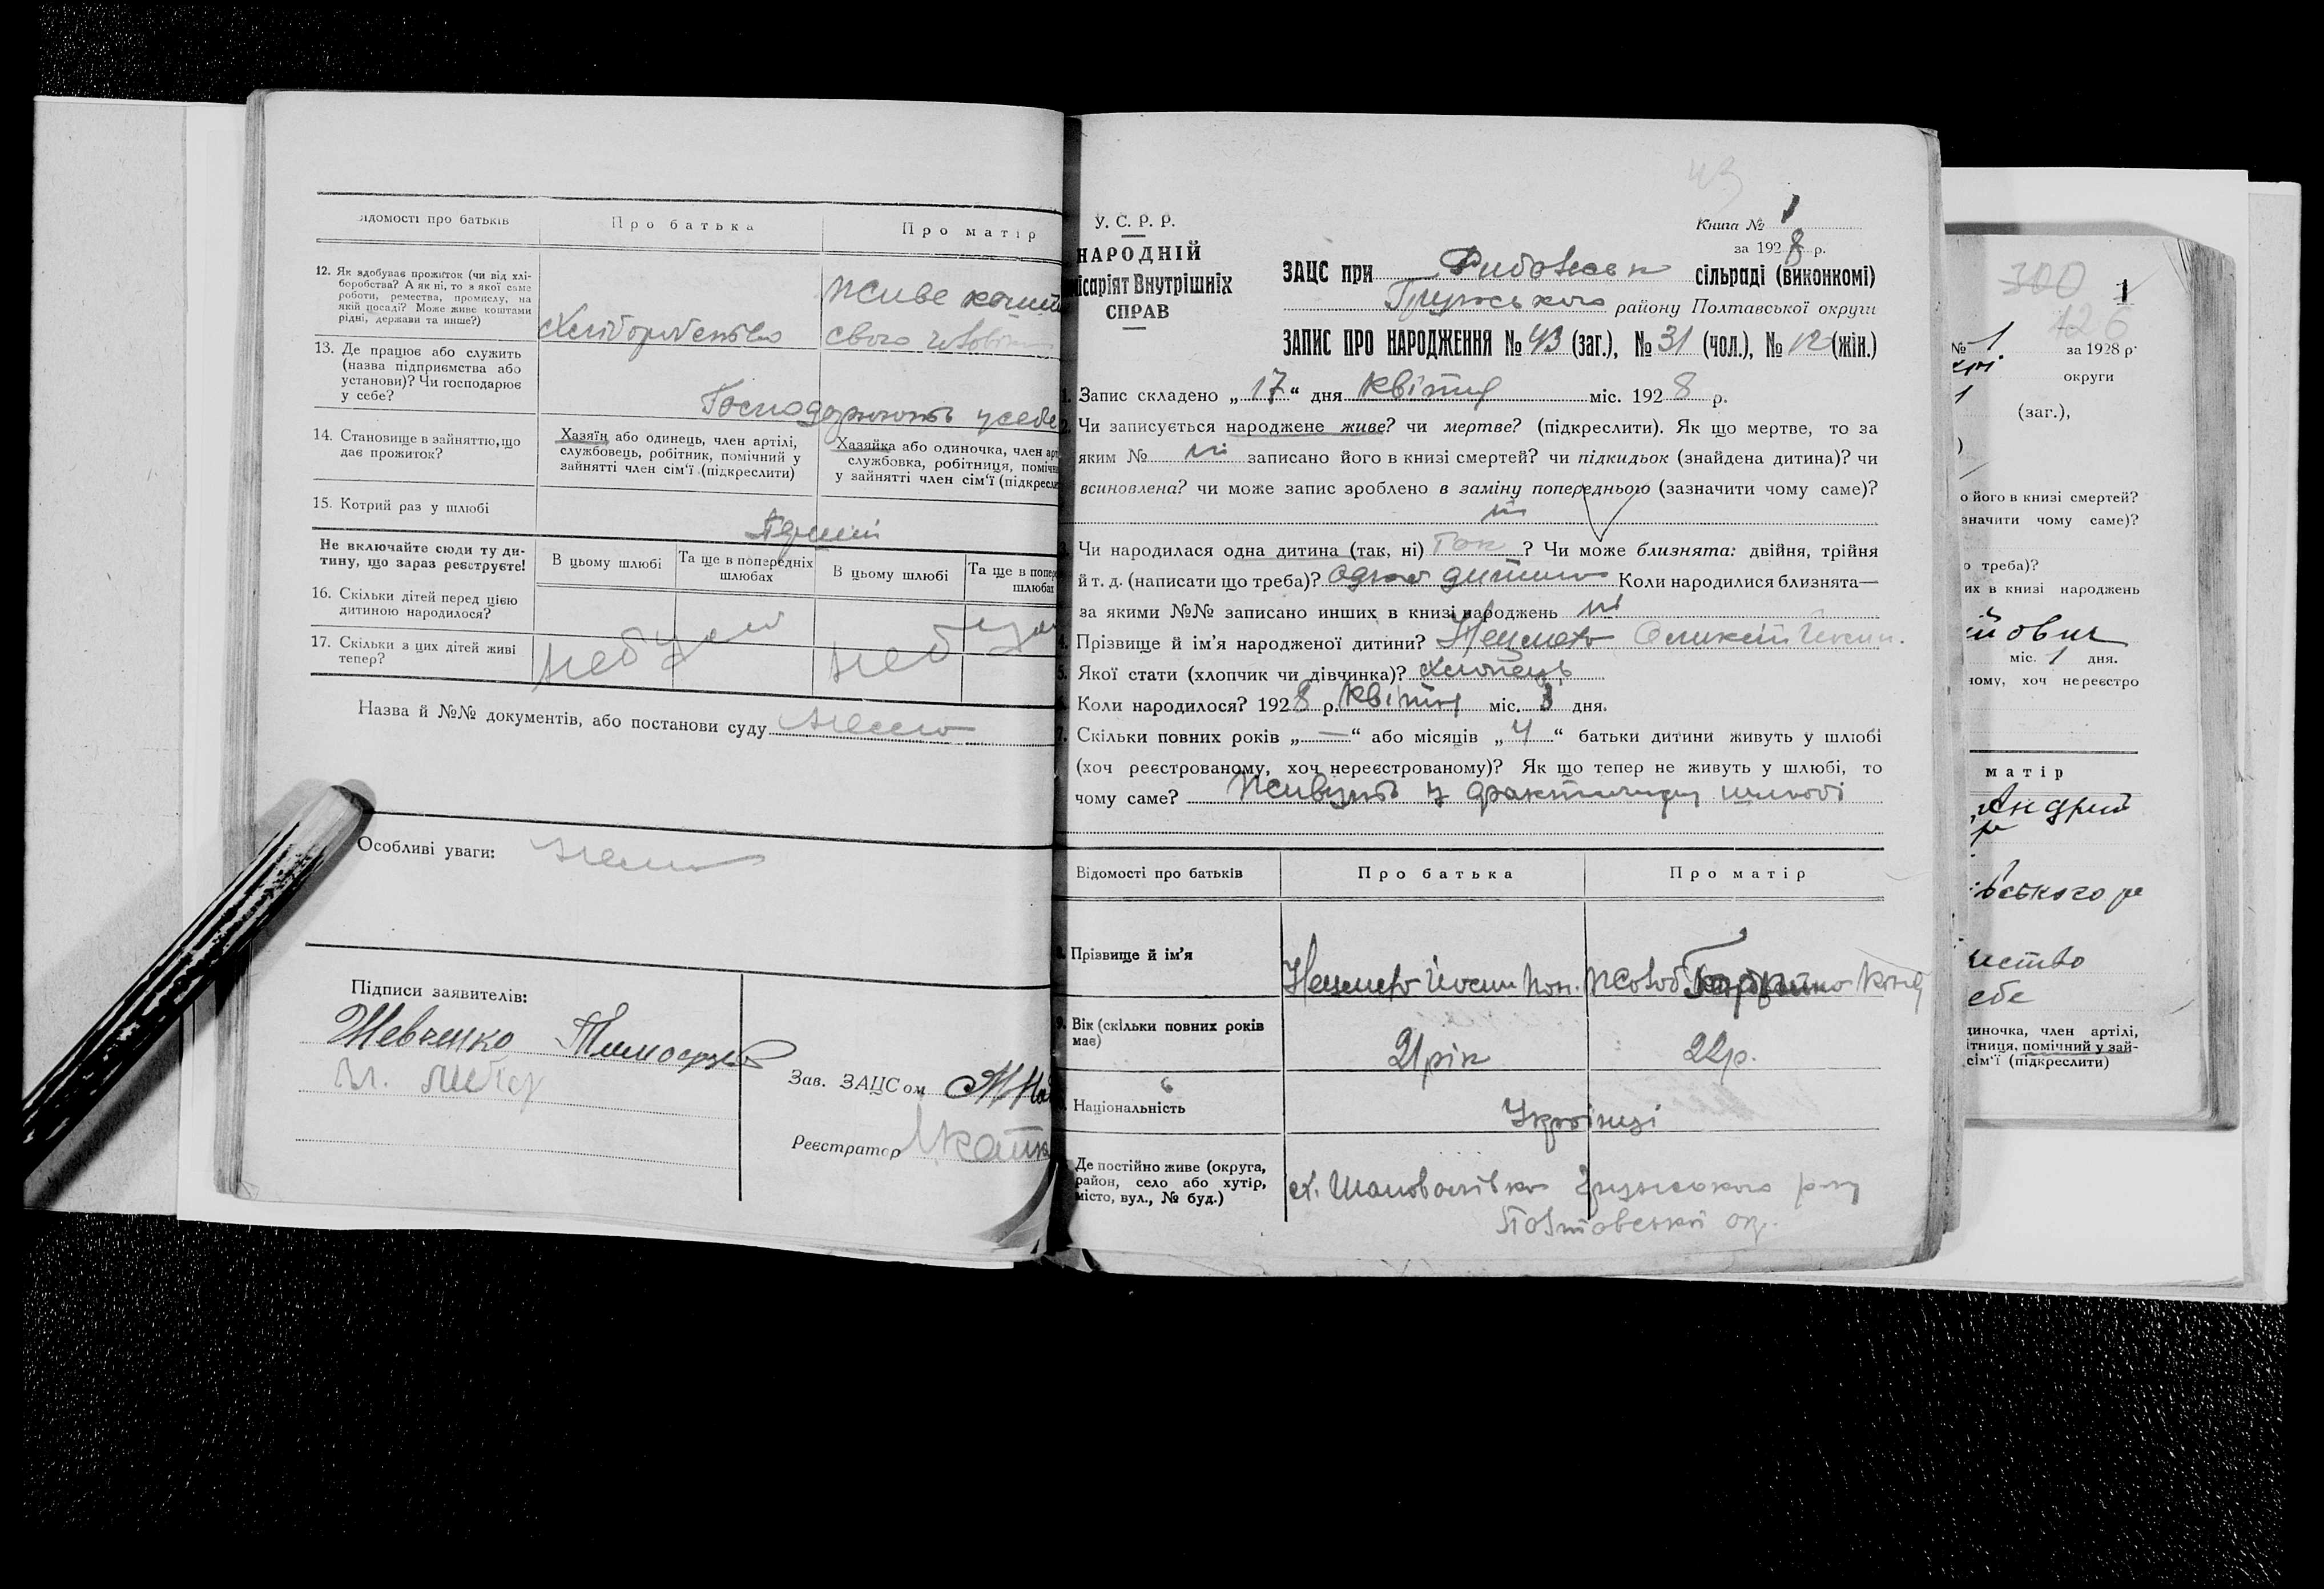 ідомості про батьків
Про батька
Про матір
12. Як здобуває прожиток (чи від хлі-
боробства? А як ні, то з якої саме
роботи, ремества, промислу, на
якій посаді? Може живе коштами
рідні, держави та инше?)
Хліборобство
Живе
свого
13. Де працює або служить
(назва підприємства або
установи)? Чи господарює
у себе?
Господарюють у себе
14. Становище в зайняттю, що
дає прожиток?
Хазяїн або одинець, член артілі,
службовець, робітник, помічний у
зайнятті член сім'ї (підкреслити)
Хазяйка або одиночка, член арт
службовка, робітниця, помічн
у зайнятті член сім'ї (підкресли
15. Котрий раз у шлюбі
Перший
Не включайте сюди ту ди-
тину, що зараз реєструєте!
В цьому шлюбі
Та ще в попередніх
шлюбах
В цьому шлюбі
Та ще в попер
шлюбах
16. Скільки дітей перед цією
дитиною народилося?
17. Скільки з цих дітей живі
тепер?
небуло
небуло
Назва й №№ документів, або постанови суду
Особливі уваги:
Підписи заявителів:
Шевченко
Зав. ЗАЦСом
Реєстратор
43
У. С. Р. Р.
НАРОДНІЙ
ісаріят Внутрішніх
СПРАВ
Книга № 1
за 1928 р.
ЗАЦС при сільраді (виконкомі)
району Полтавської округи
ЗАПИС ПРО НАРОДЖЕННЯ № 43 (заг.), № 31 (чол.), № 12 (жін.)
1. Запис складено „17“ дня квітня міс. 1928 р.
2. Чи записується народжене живе? чи мертве? (підкреслити). Як що мертве, то за
яким № ні записано його в книзі смертей? чи підкидьок (знайдена дитина)? чи
всиновлена? чи може запис зроблено в заміну попереднього (зазначити чому саме)?
ні
Чи народилася одна дитина (так, ні) так ? Чи може близнята: двійня, трійня
й т. д. (написати що треба)? одна дитина Коли народилися близнята—
за якими №№ записано инших в книзі народжень ні
4. Прізвище й ім'я народженої дитини?
5. Якої стати (хлопчик чи дівчинка)? хлопець
Коли народилось? 1928 р. квітня міс. 3 дня.
7. Скільки повних років „—“ або місяців „4“ батьки дитини живуть у шлюбі
(хоч реєстрованому, хоч нереєстрованому)? Як що тепер не живуть у шлюбі, то
чому саме? Живуть у фактичному шлюбі
Відомості про батьків
Про батька
Про матір
Прізвище й ім'я
9. Вік (скільки повних років
має)
21 рік
22 р.
Національність
Українці
Де постійно живе (округа,
район, село або хутір,
місто, вул., № буд.)
х. Шаповалівка
Полтавської ок.
300
1
126
№ 1
за 1928 р.
округи
(заг.),
о його в книзі смертей?
значити чому саме)?
о треба)?
их в книзі народжень
йович
міс. 1 дня.
ному, хоч нереєстро
матір
Андрій
ського р
ство
ебе
диночка, член артілі,
ітниця, помічний у зай-
сім'ї (підкреслити)